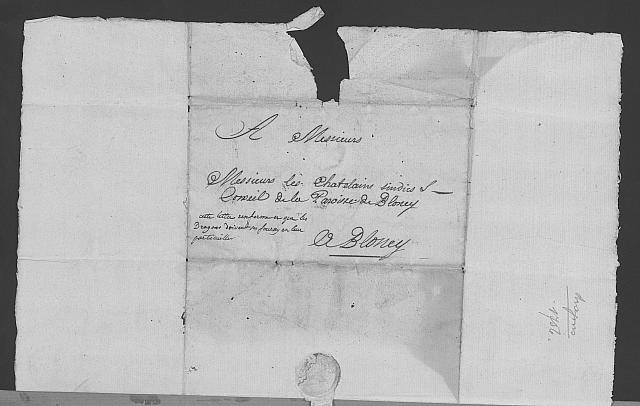 A Messieurs
Messieurs les Chatelains sindics &
Conseil de la Paroisse de Bloney
cette lettre renferme que les
Dragons doivent en leur
particulier
A Bloney
1752.